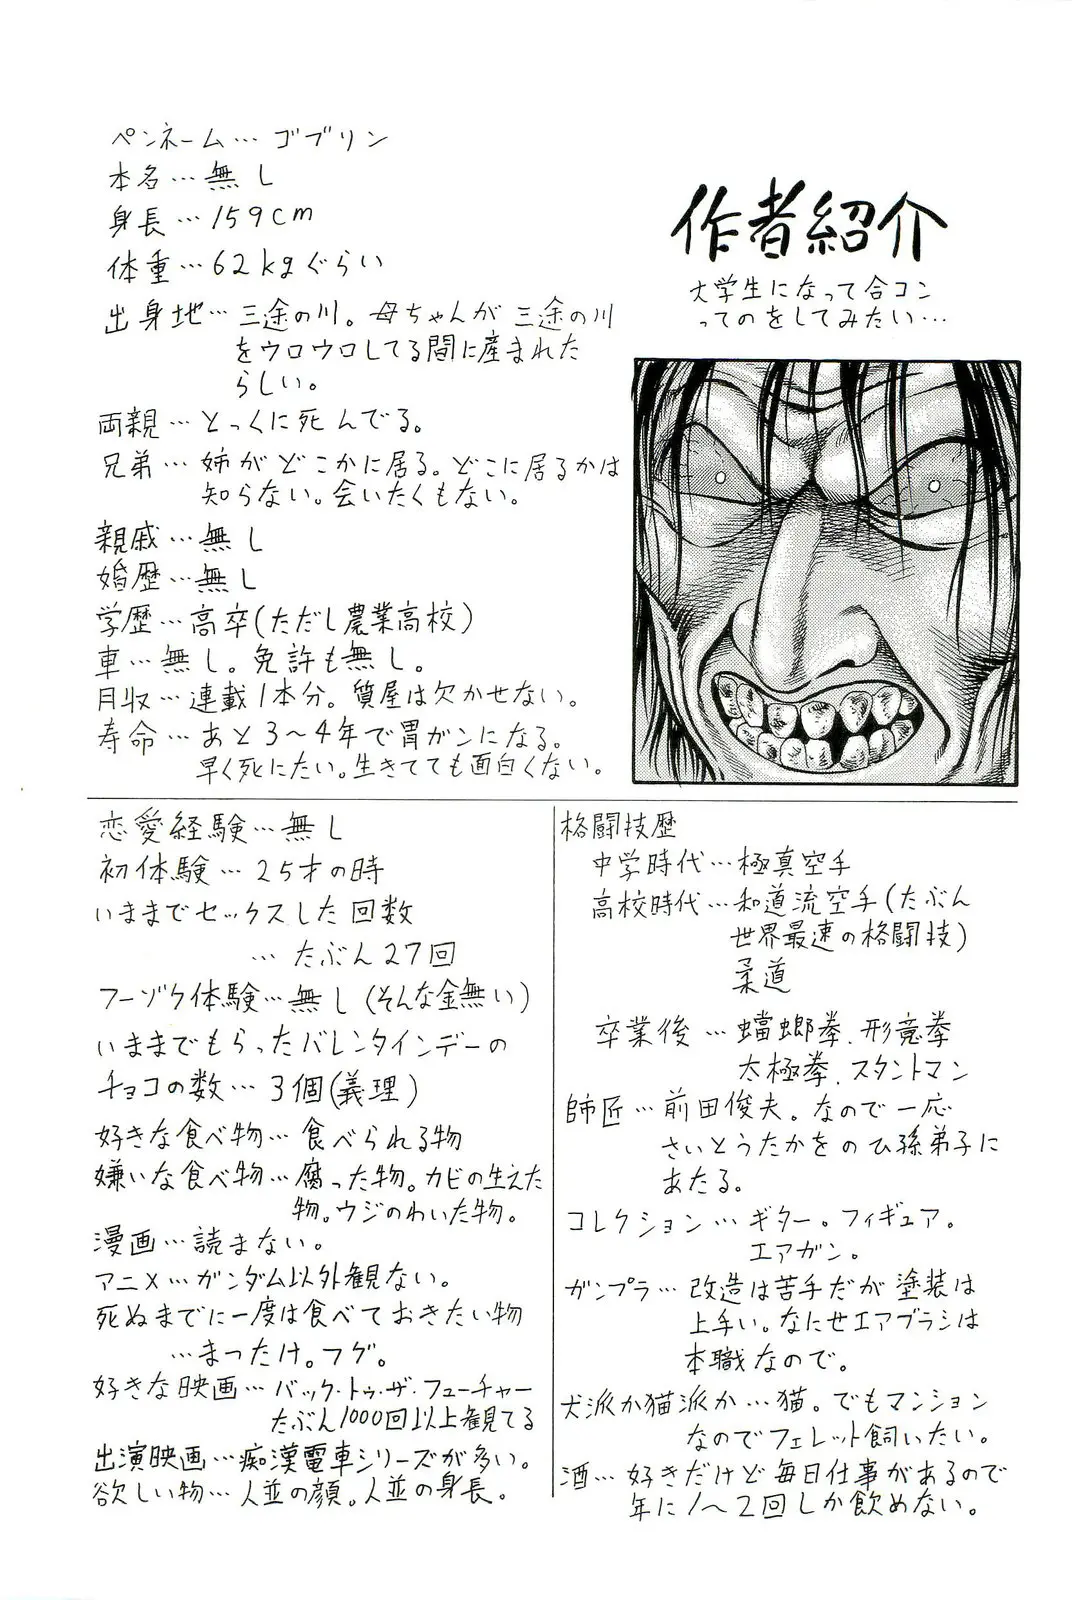 作者紹介
大学生になって合コン
ってのをしてみたい…
ペンネーム…ゴブリン
本名…無し
身長…159cm
体重…62kgぐらい
出身地…三途の川。母ちゃんが三途の川
をウロウロしてる間に産まれた
らしい。
両親…とっくに死んでる。
兄弟…姉がどこかに居る。どこに居るかは
知らない。会いたくもない。
親戚…無し
婚歴…無し
学歴…高卒(ただし農業高校)
車…無し。免許も無し。
月収…連載1本分。質屋は欠かせない。
寿命…あと3～4年で胃がンになる。
早く死にたい。生きてても面白くない。
恋愛経験…無し
初体験…25才の時
いままでセックスした回数
…たぶん27回
フーゾク体験…無し(そんな金無い)
いままでもらったバレンタインデーの
チョコの数…3個(義理)
好きな食べ物…食べられる物
嫌いな食べ物…腐った物。カビの生えた
物。ウジのわいた物。
漫画…読まない。
アニメ…ガンダム以外観ない。
死ぬまでに一度は食べておきたい物
…まつたけ。フグ。
好きな映画…バック・トゥ・ザ・フューチャー
たぶん1000回以上観てる
出演映画…痴漢電車シリーズが多い。
欲しい物…人並の顔。人並の身長。
格闘技歴
中学時代…極真空手
高校時代…和道流空手(たぶん
世界最速の格闘技)
柔道
卒業後…蟷螂拳.形意拳
太極拳.スタントマン
師匠…前田俊夫。なので一応
さいとうたかをのひ孫弟子に
あたる。
コレクション…ギター。フィギュア。
エアガン。
ガンプラ…改造は苦手だが塗装は
上手い。なにせエアブラシは
本職なので。
犬派か猫派か…猫。でもマンション
なのでフェレット飼いたい。
酒…好きだけど毎日仕事があるので
年に1～2回しか飲めない。